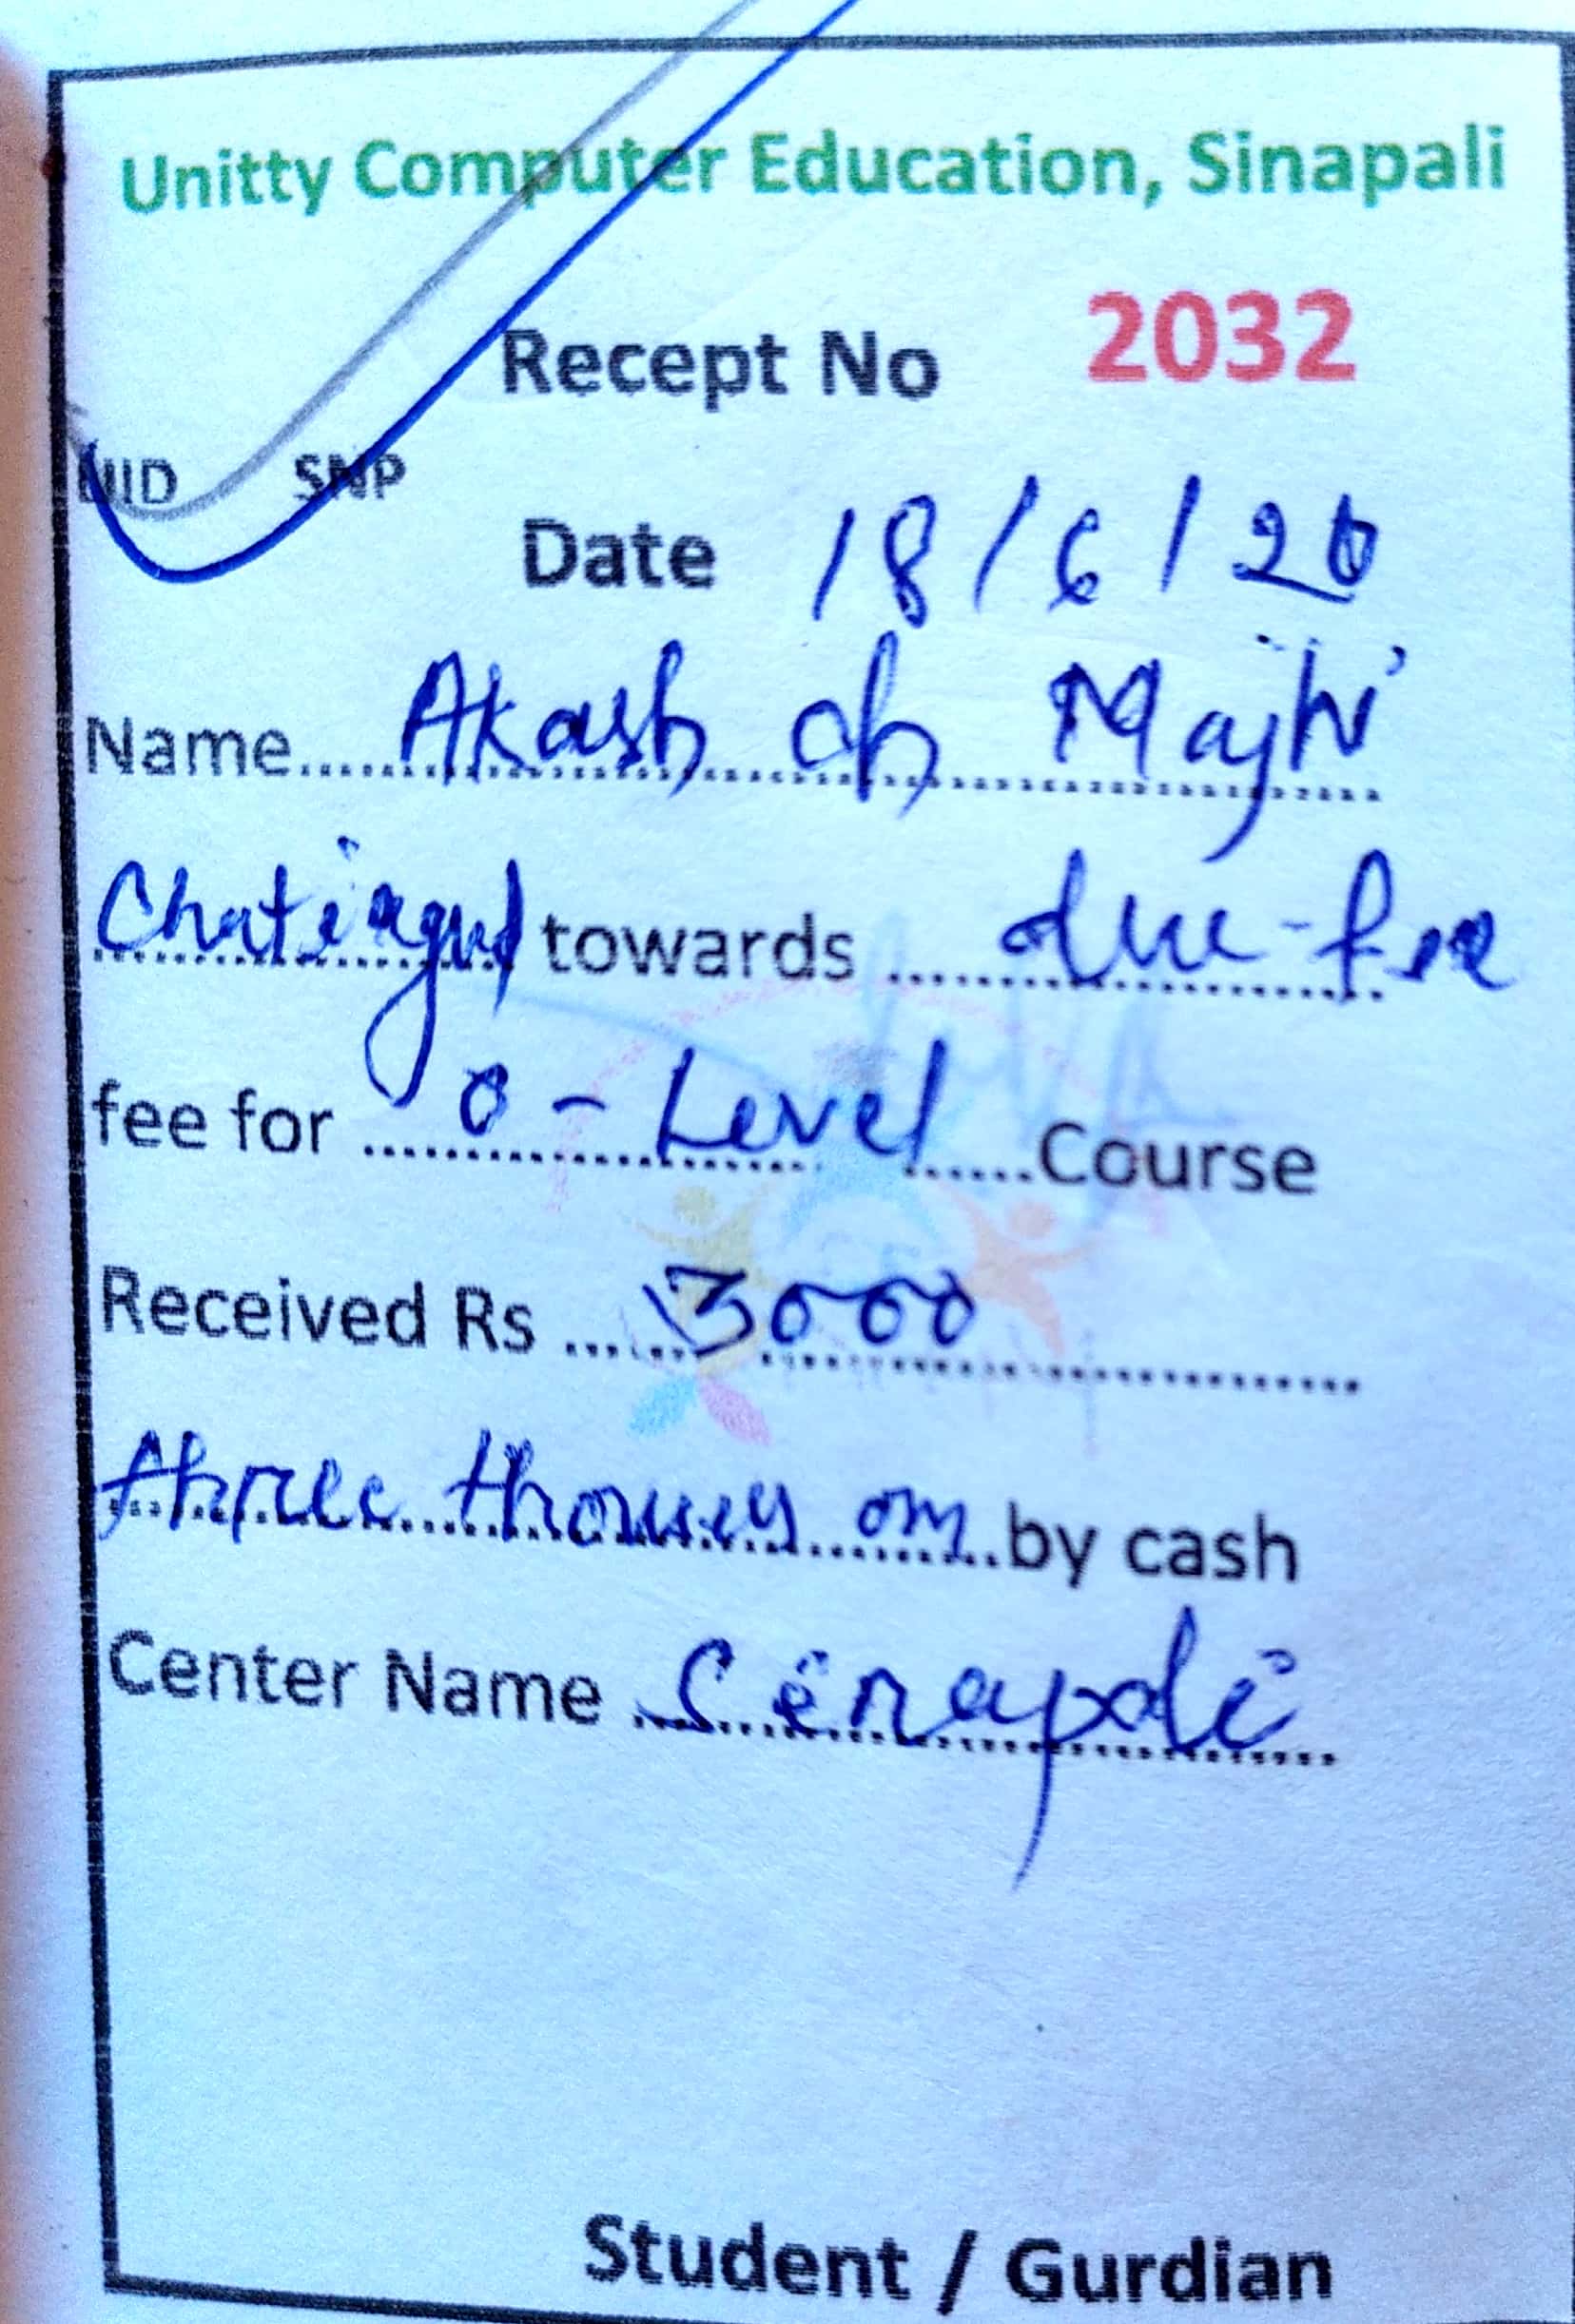 Unitty Computer Education, Sinapali
Recept No 2032
UID SNP
Date 18/6/20
Name Akash ch Majhi
Chatiagud towards due-fee
fee for O-Level Course
Received Rs 3000
three by cash
Center Name Sinapali
Student / Gurdian